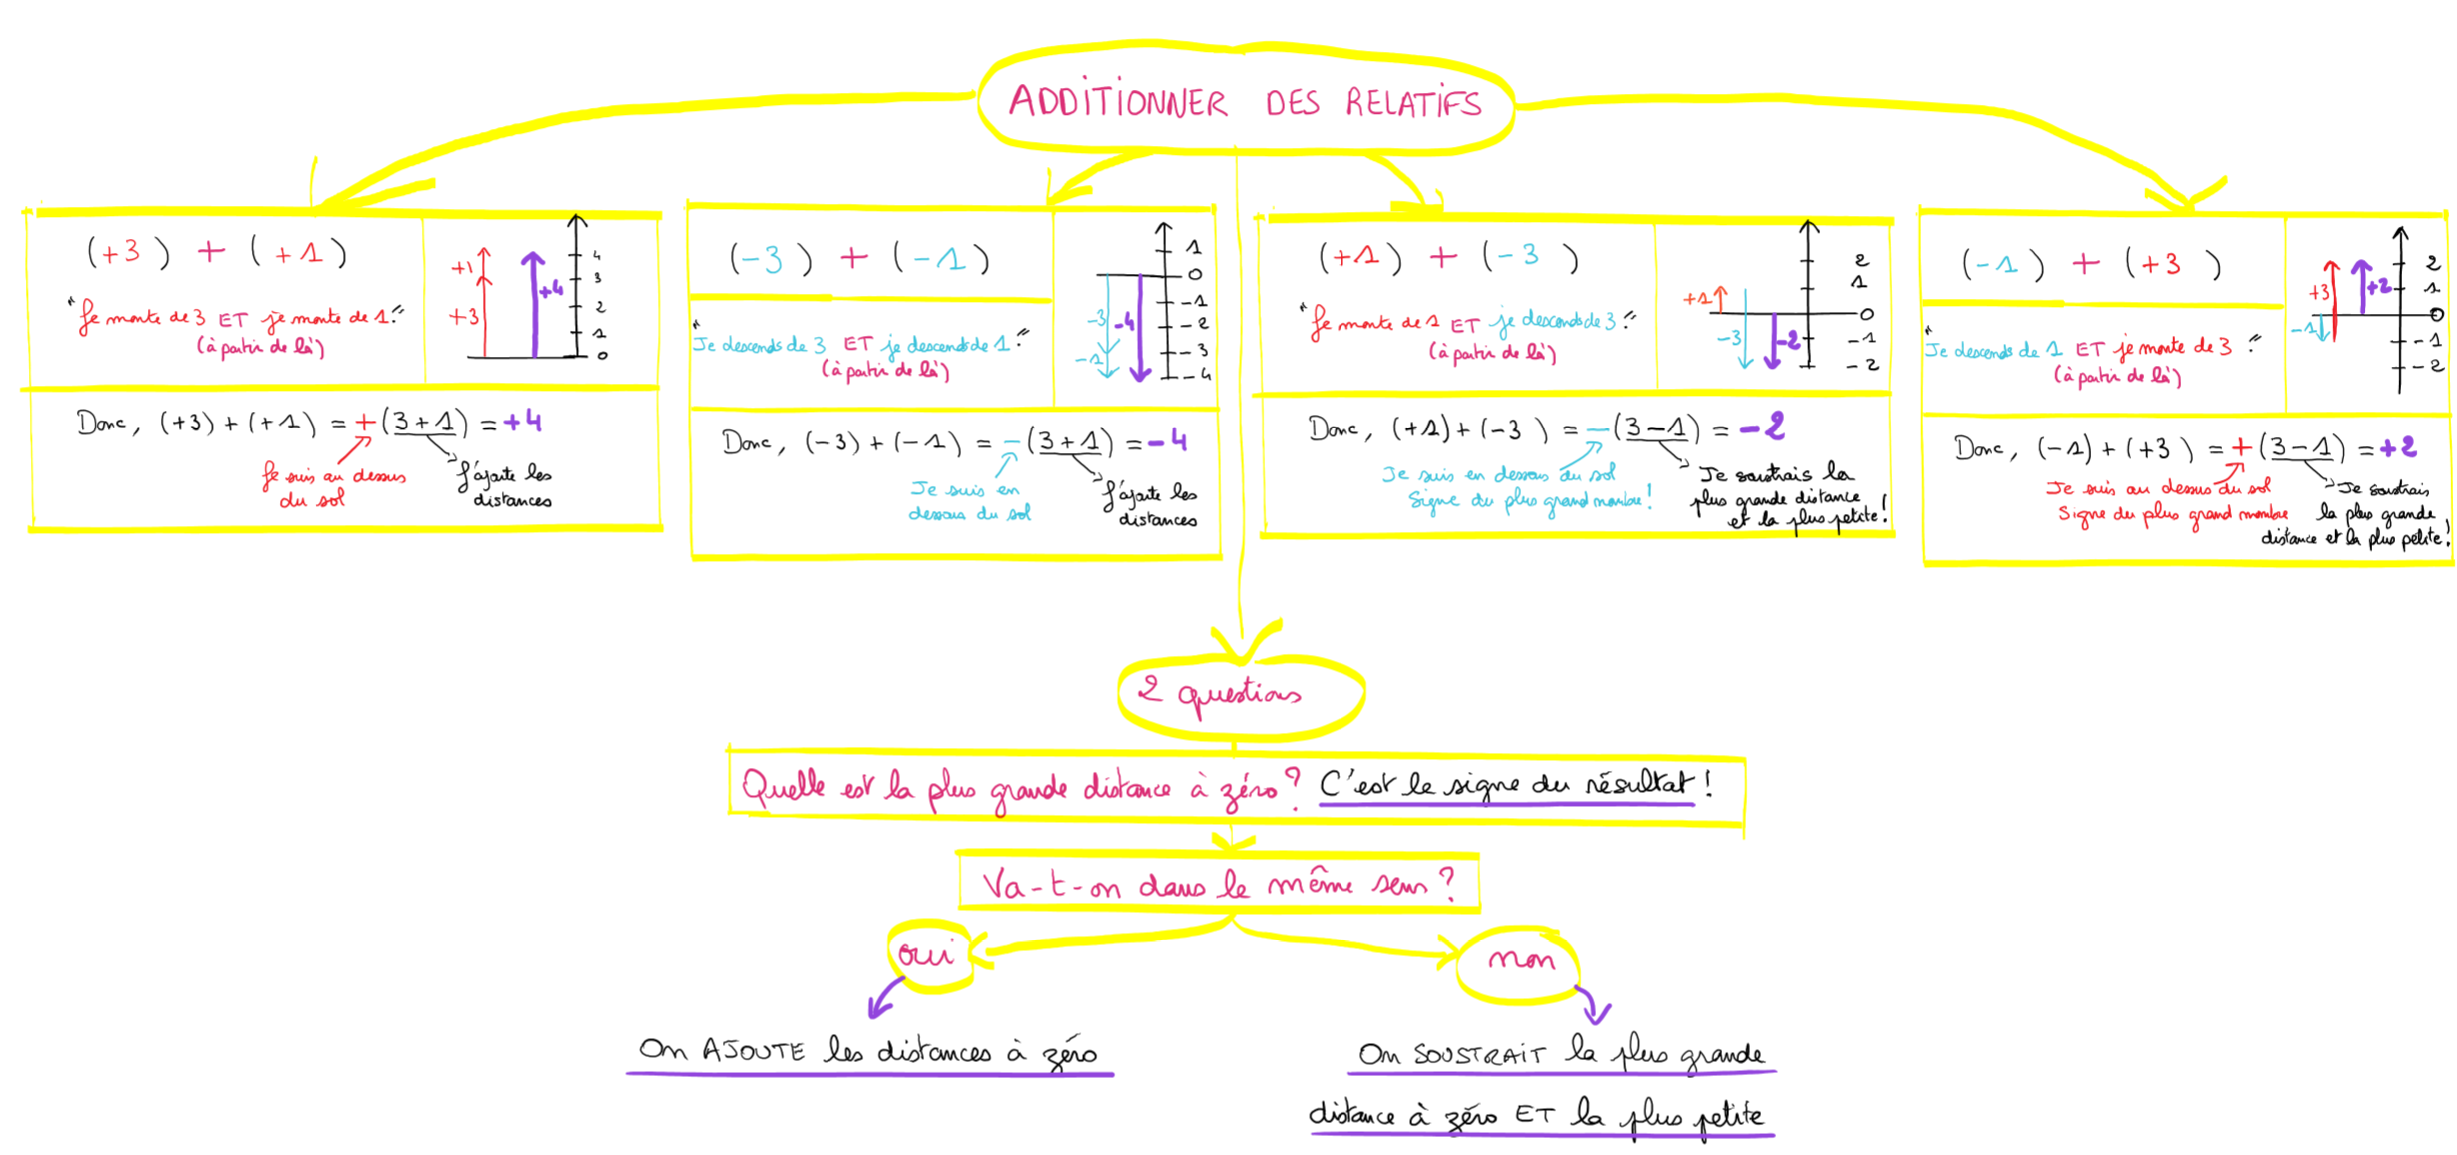 ADDITIONNER DES RELATIFS
(+3) + (+1)
"Je monte de 3 ET je monte de 1."
(à partir de là)
+1
+3
+4
4
3
2
1
0
Donc, (+3) + (+1) = +(3+1) = +4
Je suis au dessus
du sol
J'ajoute les
distances
(-3) + (-1)
"Je descends de 3 ET je descends de 1."
(à partir de là)
-3
-1
-4
1
0
-1
-2
-3
-4
Donc, (-3) + (-1) = -(3+1) = -4
Je suis en
dessous du sol
J'ajoute les
distances
(+1) + (-3)
"Je monte de 1 ET je descends de 3."
(à partir de là)
+1
-3
-2
2
1
0
-1
-2
Donc, (+1) + (-3) = -(3-1) = -2
Je suis en dessous du sol
Signe du plus grand nombre!
Je soustrais la
plus grande distance
et la plus petite!
(-1) + (+3)
"Je descends de 1 ET je monte de 3"
(à partir de là)
+3
-1
+2
2
1
0
-1
-2
Donc, (-1) + (+3) = +(3-1) = +2
Je suis au dessus du sol
Signe du plus grand nombre
Je soustrais
la plus grande
distance et la plus petite!
2 questions
Quelle est la plus grande distance à zéro? C'est le signe du résultat!
Va-t-on dans le même sens?
oui
non
On AJOUTE les distances à zéro
On SOUSTRAIT la plus grande
distance à zéro ET la plus petite